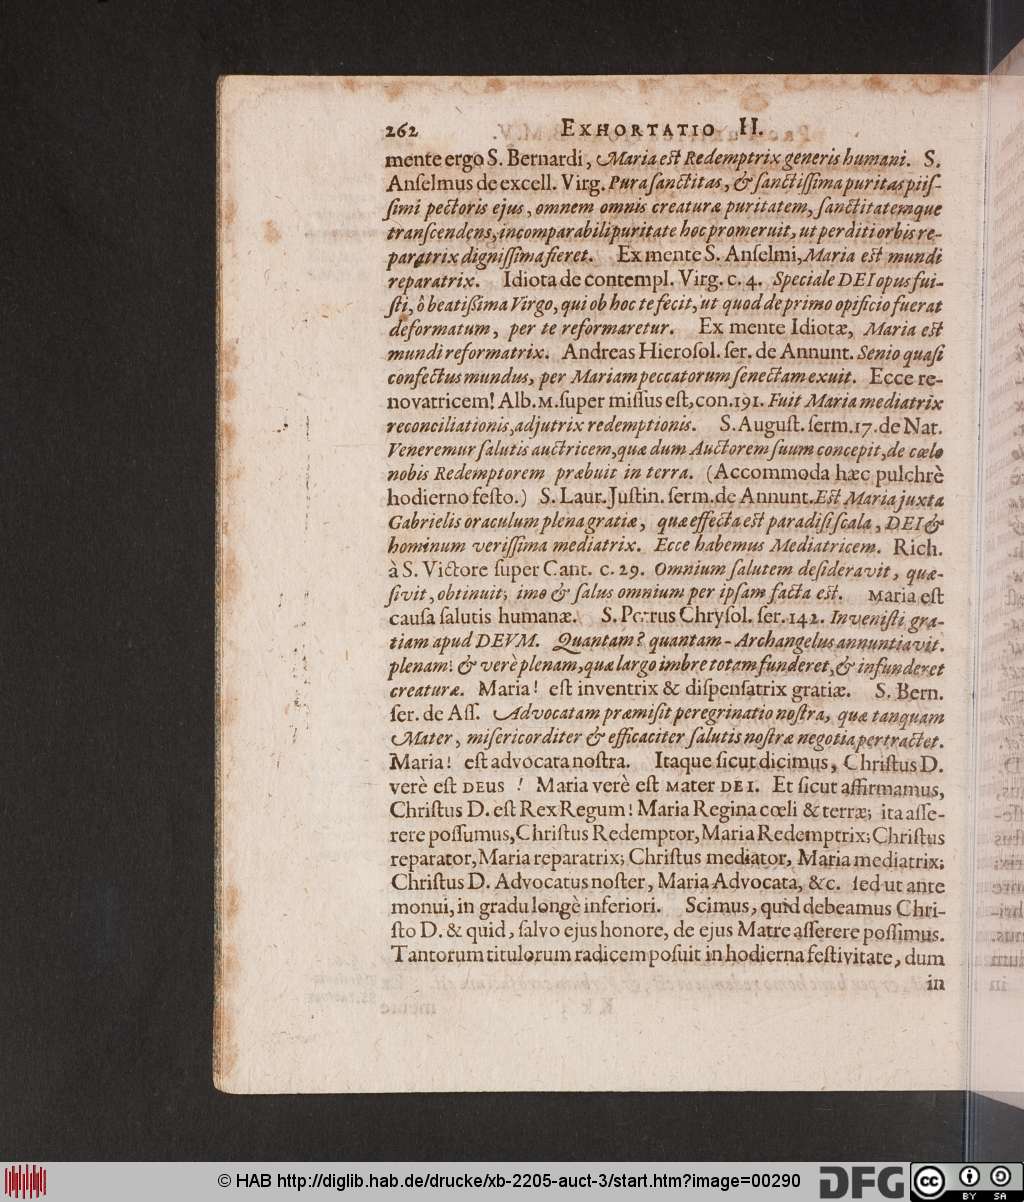 262 EXHORTATIO II.
mente ergo S. Bernardi, Maria eſt Redemptrix generis humani. S.
Anſelmus de excell. Virg. Pura ſanctitas, & ſanctiſſima puritas piiſ-
ſimi pectoris ejus, omnem omnis creaturæ puritatem, ſanctitatemque
tranſcendens, incomparabili puritate hoc promeruit, ut perditi orbis re-
paratrix digniſſima fieret. Ex mente S. Anſelmi, Maria eſt mundi
reparatrix. Idiota de contempl. Virg. c. 4. Speciale DEI opus fui-
ſti, ô beatißima Virgo, qui ob hoc te fecit, ut quod de primo opificio fuerat
deformatum, per te reformaretur. Ex mente Idiotæ, Maria eſt
mundi reformatrix. Andreas Hieroſol. ſer. de Annunt. Senio quaſi
confectus mundus, per Mariam peccatorum ſenectam exuit. Ecce re-
novatricem! Alb. M. ſuper miſſus eſt, con. 191. Fuit Maria mediatrix
reconciliationis, adjutrix redemptionis. S. Auguſt. ſerm. 17. de Nat.
Veneremur ſalutis auctricem, quæ dum Auctorem ſuum concepit, de cœlo
nobis Redemptorem præbuit in terra. (Accommoda hæc pulchrè
hodierno feſto.) S. Laur. Juſtin. ſerm. de Annunt. Eſt Maria juxta
Gabrielis oraculum plena gratiæ, quæ effecta eſt paradiſi ſcala, DEI &
hominum veriſſima mediatrix. Ecce habemus Mediatricem. Rich.
à S. Victore ſuper Cant. c. 29. Omnium ſalutem deſideravit, quæ-
ſivit, obtinuit; imo & ſalus omnium per ipſam facta eſt. Maria eſt
cauſa ſalutis humanæ. S. Petrus Chryſol. ſer. 142. Inveniſti gra-
tiam apud DEVM. Quantam? quantam - Archangelus annuntiavit.
plenam! & verè plenam, quæ largo imbre totam funderet, & infunderet
creaturæ. Maria! eſt inventrix & diſpenſatrix gratiæ. S. Bern.
ſer. de Aſſ. Advocatam præmiſit peregrinatio noſtra, quæ tanquam
Mater, miſericorditer & efficaciter ſalutis noſtræ negotia pertractet.
Maria! eſt advocata noſtra. Itaque ſicut dicimus, Chriſtus D.
verè eſt DEUS! Maria verè eſt Mater DEI. Et ſicut affirmamus,
Chriſtus D. eſt Rex Regum! Maria Regina cœli & terræ; ita aſſe-
rere poſſumus, Chriſtus Redemptor, Maria Redemptrix; Chriſtus
reparator, Maria reparatrix; Chriſtus mediator, Maria mediatrix;
Chriſtus D. Advocatus noſter, Maria Advocata, &c. ſed ut ante
monui, in gradu longè inferiori. Scimus, quid debeamus Chri-
ſto D. & quid, ſalvo ejus honore, de ejus Matre aſſerere poſſimus.
Tantorum titulorum radicem poſuit in hodierna feſtivitate, dum
in
© HAB http://diglib.hab.de/drucke/xb-2205-auct-3/start.htm?image=00290
DFG
cc BY SA